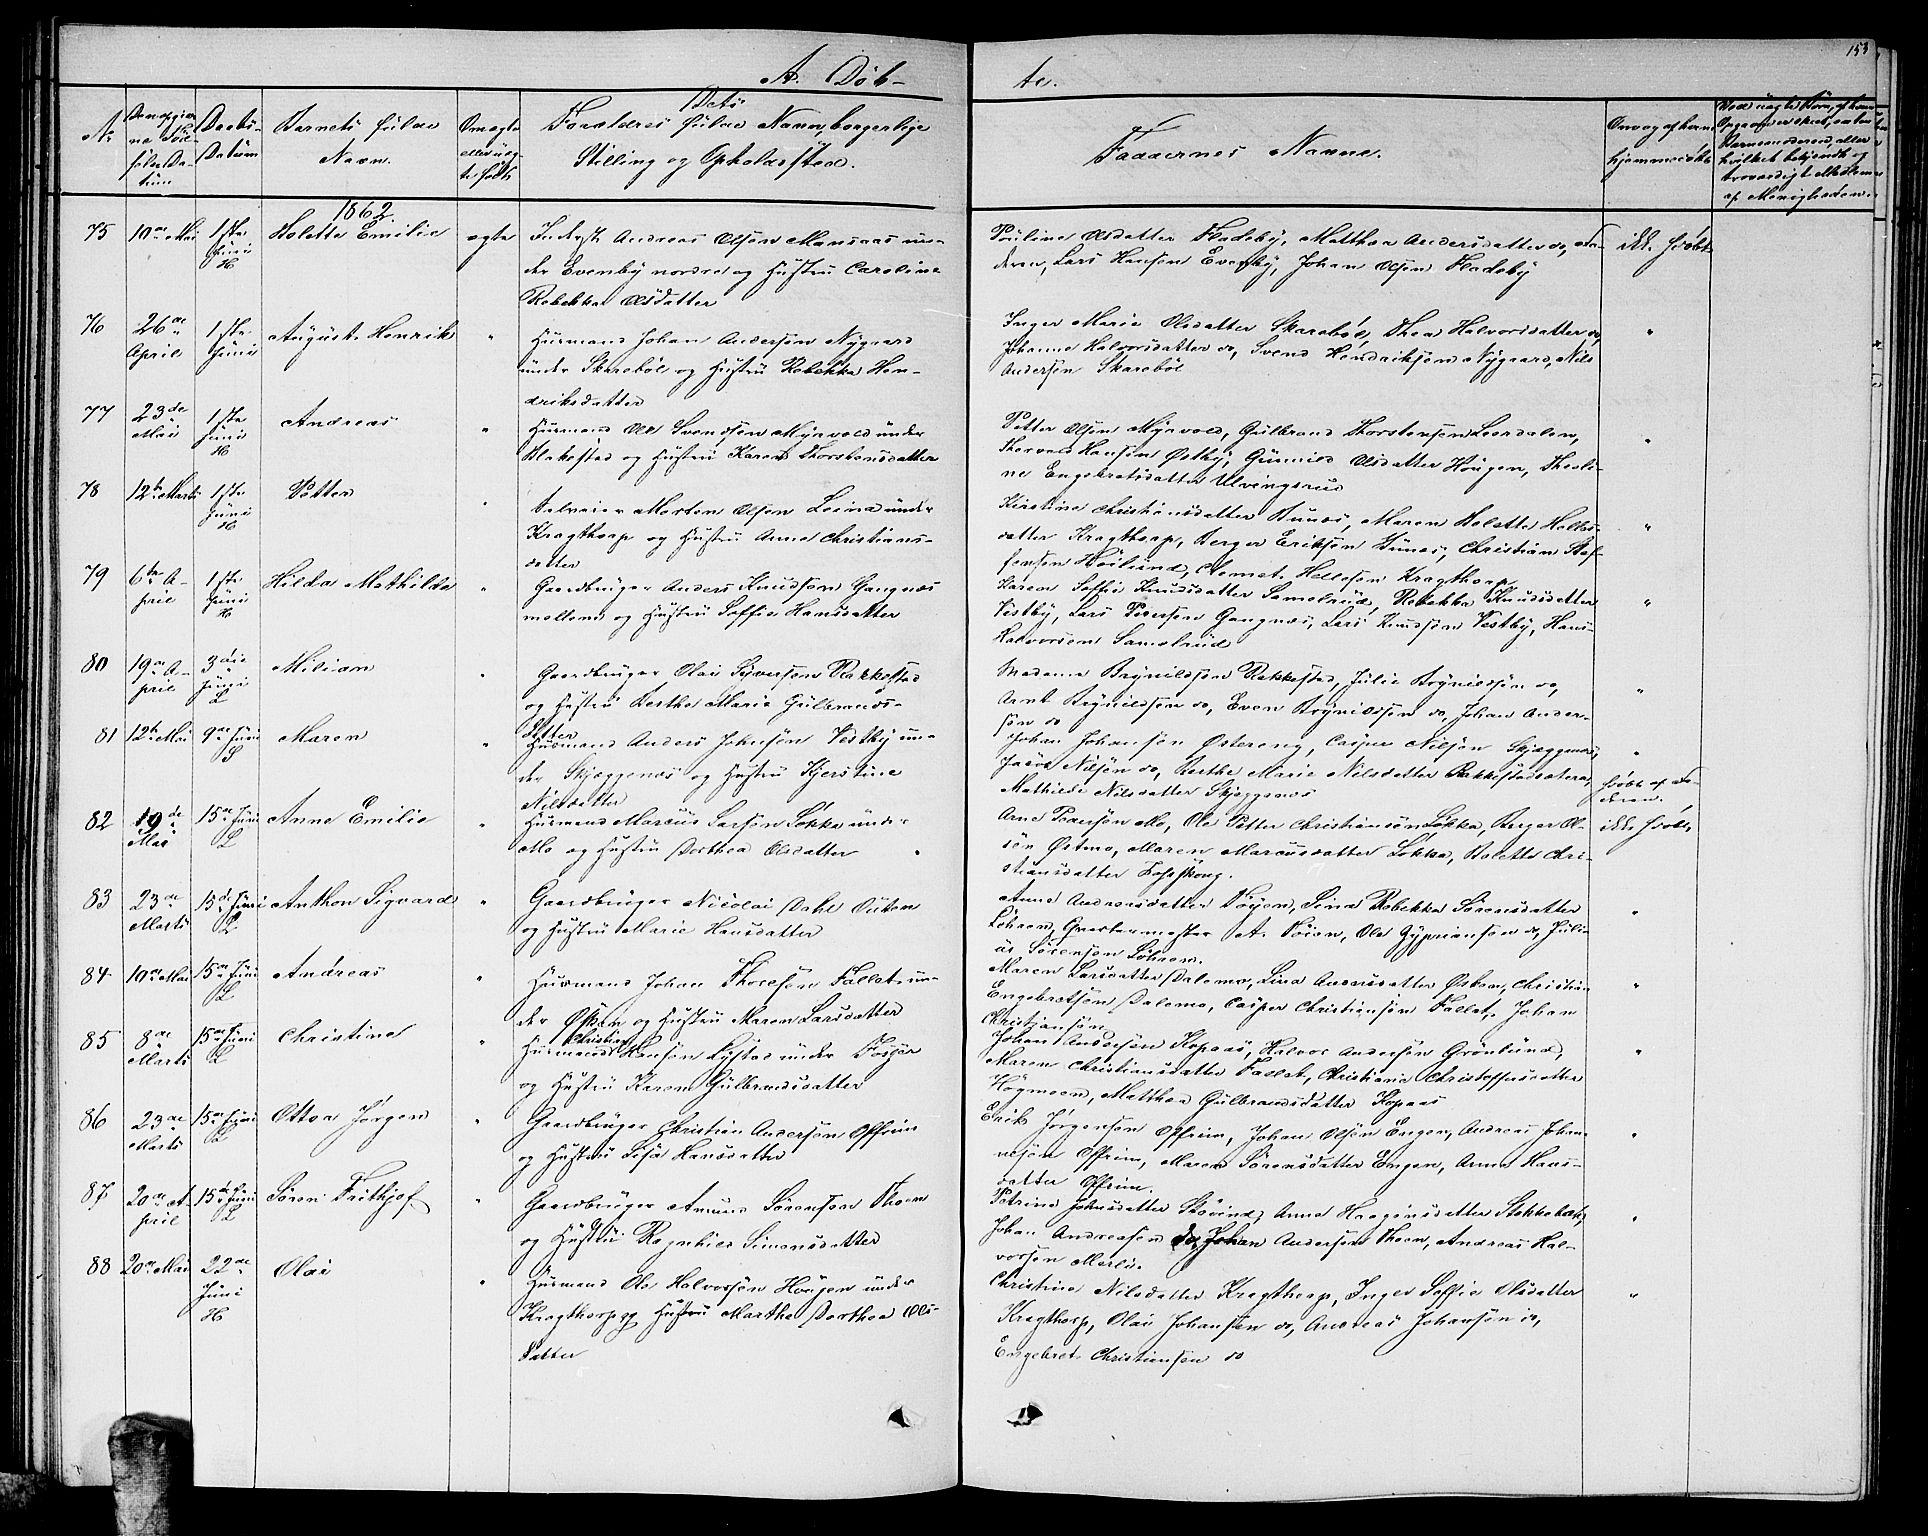 153
A. Døb-
te.
No
Daabs-
Datum
Barnets fulde
Navn.
Forældres fulde Navn, borgerlige
Stilling og Opholdssted.
Faddernes Navne.
hjemmedøbt
af Menigheden.
1862.
75 10de Mai 1ste Juni H Bolette Emilie ægte
Inderst Andreas Olsen Mansaas un-
der Evenby nordre og Hustru Caroline
Rebekka Olsdatter
Pauline Olsdatter Fladeby, Matthea Andersdatter do, Fa-
deren, Lars Hansen Evenby, Johan Olsen Fladeby
ikke hjdøbt
76 26de April 1ste Juni August Henrik "
Husmand Johan Andersen Nygaard
under Skarebøl og Hustru Rebekka Hen-
driksdatter
Inger Marie Olsdatter Skarebøl, Thea Halvorsdatter do,
Johanne Halvorsdatter do, Svend Hendriksen Nygaard, Nils
Andersen Skarebøl
"
77 23de Mai 1ste Juni H Andreas "
Husmand Ole Svendsen Myrvold under
Blakestad og Hustru Karen Thorstensdatter
Petter Olsen Myrvold, Gulbrand Thorstensen Leerdalen,
Thorvald Hansen Østby, Gunnild Olsdatter Haugen, Theoli-
ne Engebretsdatter Ulvingsrud
"
78 12te Marts 1ste Juni H Petter "
Selveier Morten Olsen Leina under
Kragthorp og Hustru Anne Christians-
datter
Kirstine Christiansdatter Bunæs, Maren Bolette Helles-
datter Kragthorp, Berger Eriksen Bunæs, Christian Stef-
fensen Høilund, Aemet Hellesen Kragthorp
"
79 6te A-
pril 1ste Juni H Hilda Mathilde "
Gaardbruger Anders Knudsen Gangnæs
mellem og Hustru Soffie Hansdatter
Karen Soffie Knudsdatter Samelrud, Rebekka Knudsdatter
Vestby, Lars Pedersen Gangnæs, Lars Knudsen Vestby, Hans
Halvorsen Samelrud
"
80 19de A-
pril 3die Juni L Milian "
Gaardbruger Olai Syversen Rakkestad
og Hustru Berthe Marie Gulbrands-
datter
Madame Brynildsen Rakkestad, Julie Brynildsen do,
Arnt Brynildsen do, Even Brynildsen do, Johan Ander-
sen do
"
81 12te Mai 9de Juni S Maren "
Husmand Anders Johnsen Vestby un-
der Skjæggenæs og Hustru Kjerstine
Nilsdatter
Johan Johansen Østereng, Casper Nilsen Skjæggenæs,
Jacob Nilsen do, Berthe Marie Nilsdatter Rakkestadsætera,
Mathilde Nilsdatter Skjæggenæs
"
82 19de Mai 15de Juni L Anne Emilie "
Husmand Marcus Larsen Løkka under
Mo og Hustru Dorthea Olsdatter
Arne Pedersen Mo, Ole Petter Christiansen Løkka, Berger Ol-
sen Østmo, Maren Marcusdatter Løkka, Bolette Chri-
stiansdatter
hjdøbt af Fa-
deren.
ikke hjdøbt,
83 23de Marts 15de Juni L Anthon Sigvard "
Gaardbruger Nicolai Dahl Outom
og Hustru Marie Hansdatter
Anne Andersdatter Søijen, Lina Rebekka Sørensdatter
Løhren, Qvartermester A. Søien, Ole Zyprianson do, Juli-
us Sørensen Løhren.
"
84 10de Mai 15de Juni L Andreas "
Husmand Johan Thoresen Fallet un-
der Østern og Hustru Maren Larsdatter
Maren Larsdatter Dalemo, Lina Andersdatter Østern, Christian
Engebretsen Dalemo, Casper Christiansen Fallet, Johan
Christiansen
"
85 8de Marts 15de Juni L Christine "
Husmand Christian Hansen Lystad under Fosser
og Hustru Karen Gulbrandsdatter
Johan Andersen Kopaas, Halvor Andersen Grønlund,
Maren Christiansdatter Fallet, Christiane Christoffersdatter
Høgmoen, Matthea Gulbrandsdatter Kopaas
"
86 23de Marts 15de Juni L Ottar Jørgen "
Gaardbruger Christian Andersen Opfrim
og Hustru Lisa Hansdatter
Erik Jørgensen Opfrim, Johan Olsen Engen, Andreas Johan-
nesen Opfrim, Maren Sørensdatter Engen, Anne Hans-
datter Opfrim.
"
87 20de A-
pril 15de Juni L Søren Frithjof "
Gaardbruger Amund Sørensen Thoen
og Hustru Ragnhild Simensdatter
Petrine Johnsdatter Skøvind, Anne Haagensdatter Stokkebæk,
Johan Andreasen do, Johan Andersen Thoen, Andreas Hal-
vorsen Merli.
"
88 20de Mai 22de Juni H Olai "
Husmand Ole Halvorsen Haugen under
Kragthorp og Hustru Marthe Dorthea Ols-
datter
Christine Nilsdatter Kragthorp, Inger Soffie Olsdatter
Kragthorp, Olai Johansen do, Andreas Johansen do,
Engebret Christiansen do
"